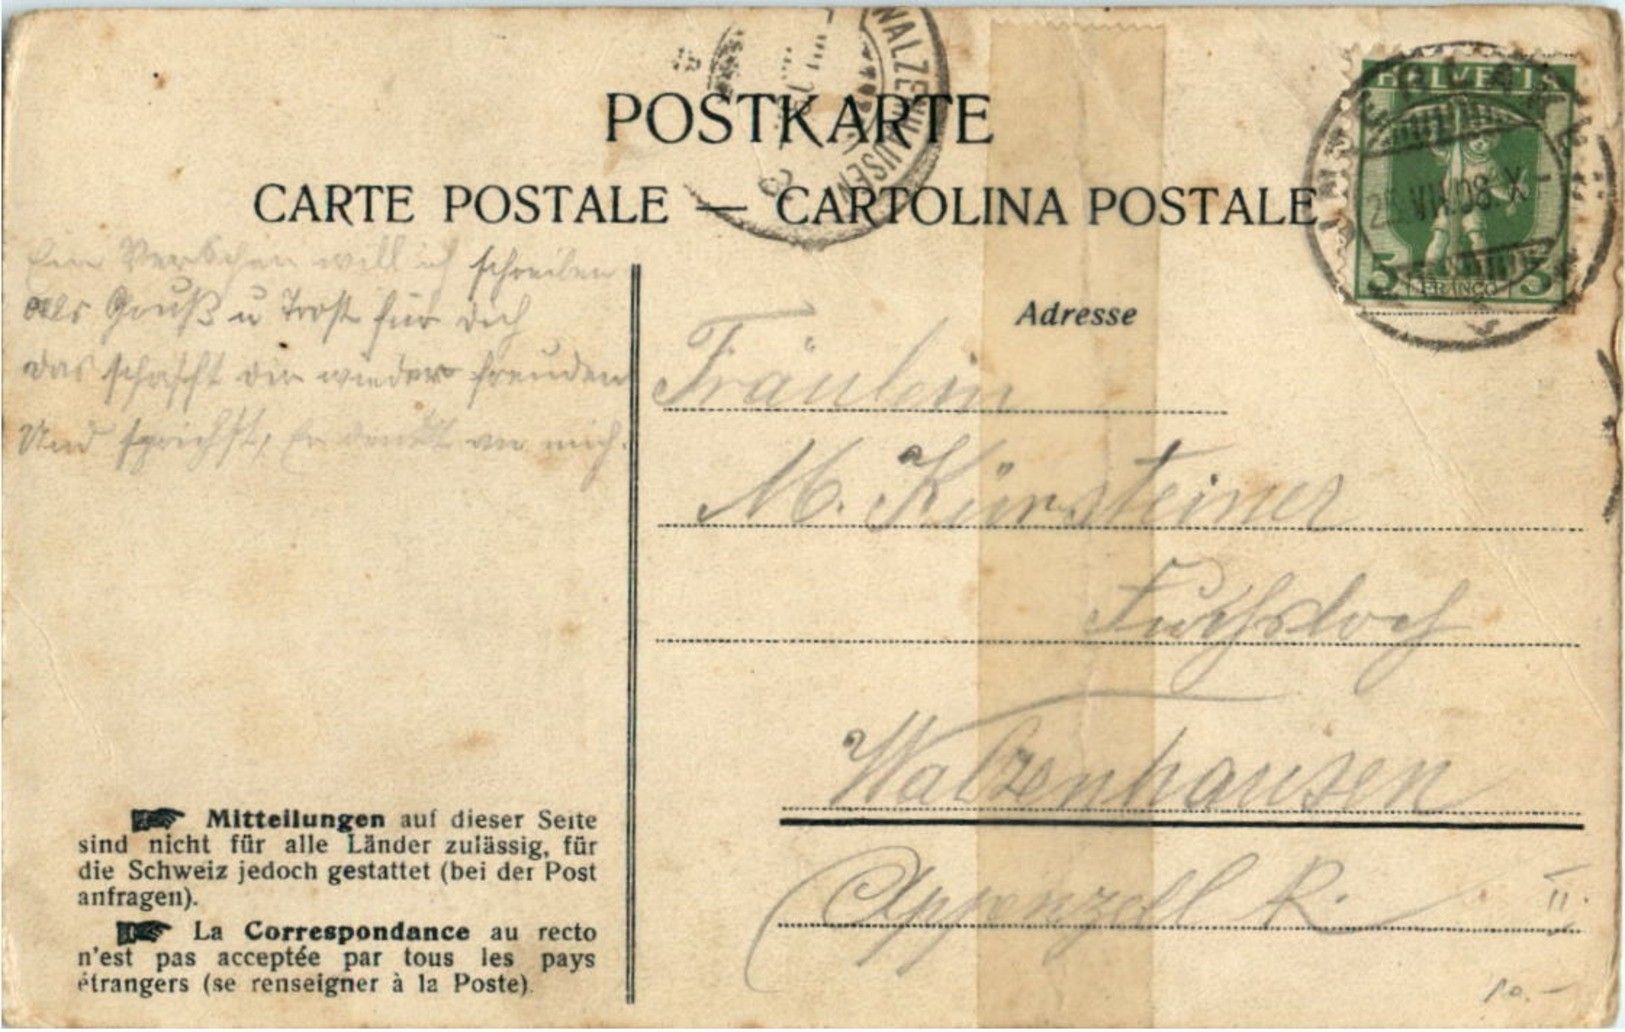 POSTKARTE
CARTE POSTALE — CARTOLINA POSTALE
WALZENHAUSEN
HELVETIA
VII.08.X
5 FRANCO 5
Ein Verschen will ich schreiben
als Gruß u Trost für dich
das schafft dir wieder freuden
Und sprichst, Er denkt an mich.
Adresse
Fräulein
M. Kürsteiner
Fuchsloch
Walzenhausen
Appenzell R.
10.-
Mitteilungen auf dieser Seite
sind nicht für alle Länder zulässig, für
die Schweiz jedoch gestattet (bei der Post
anfragen).
La Correspondance au recto
n'est pas acceptée par tous les pays
étrangers (se renseigner à la Poste).